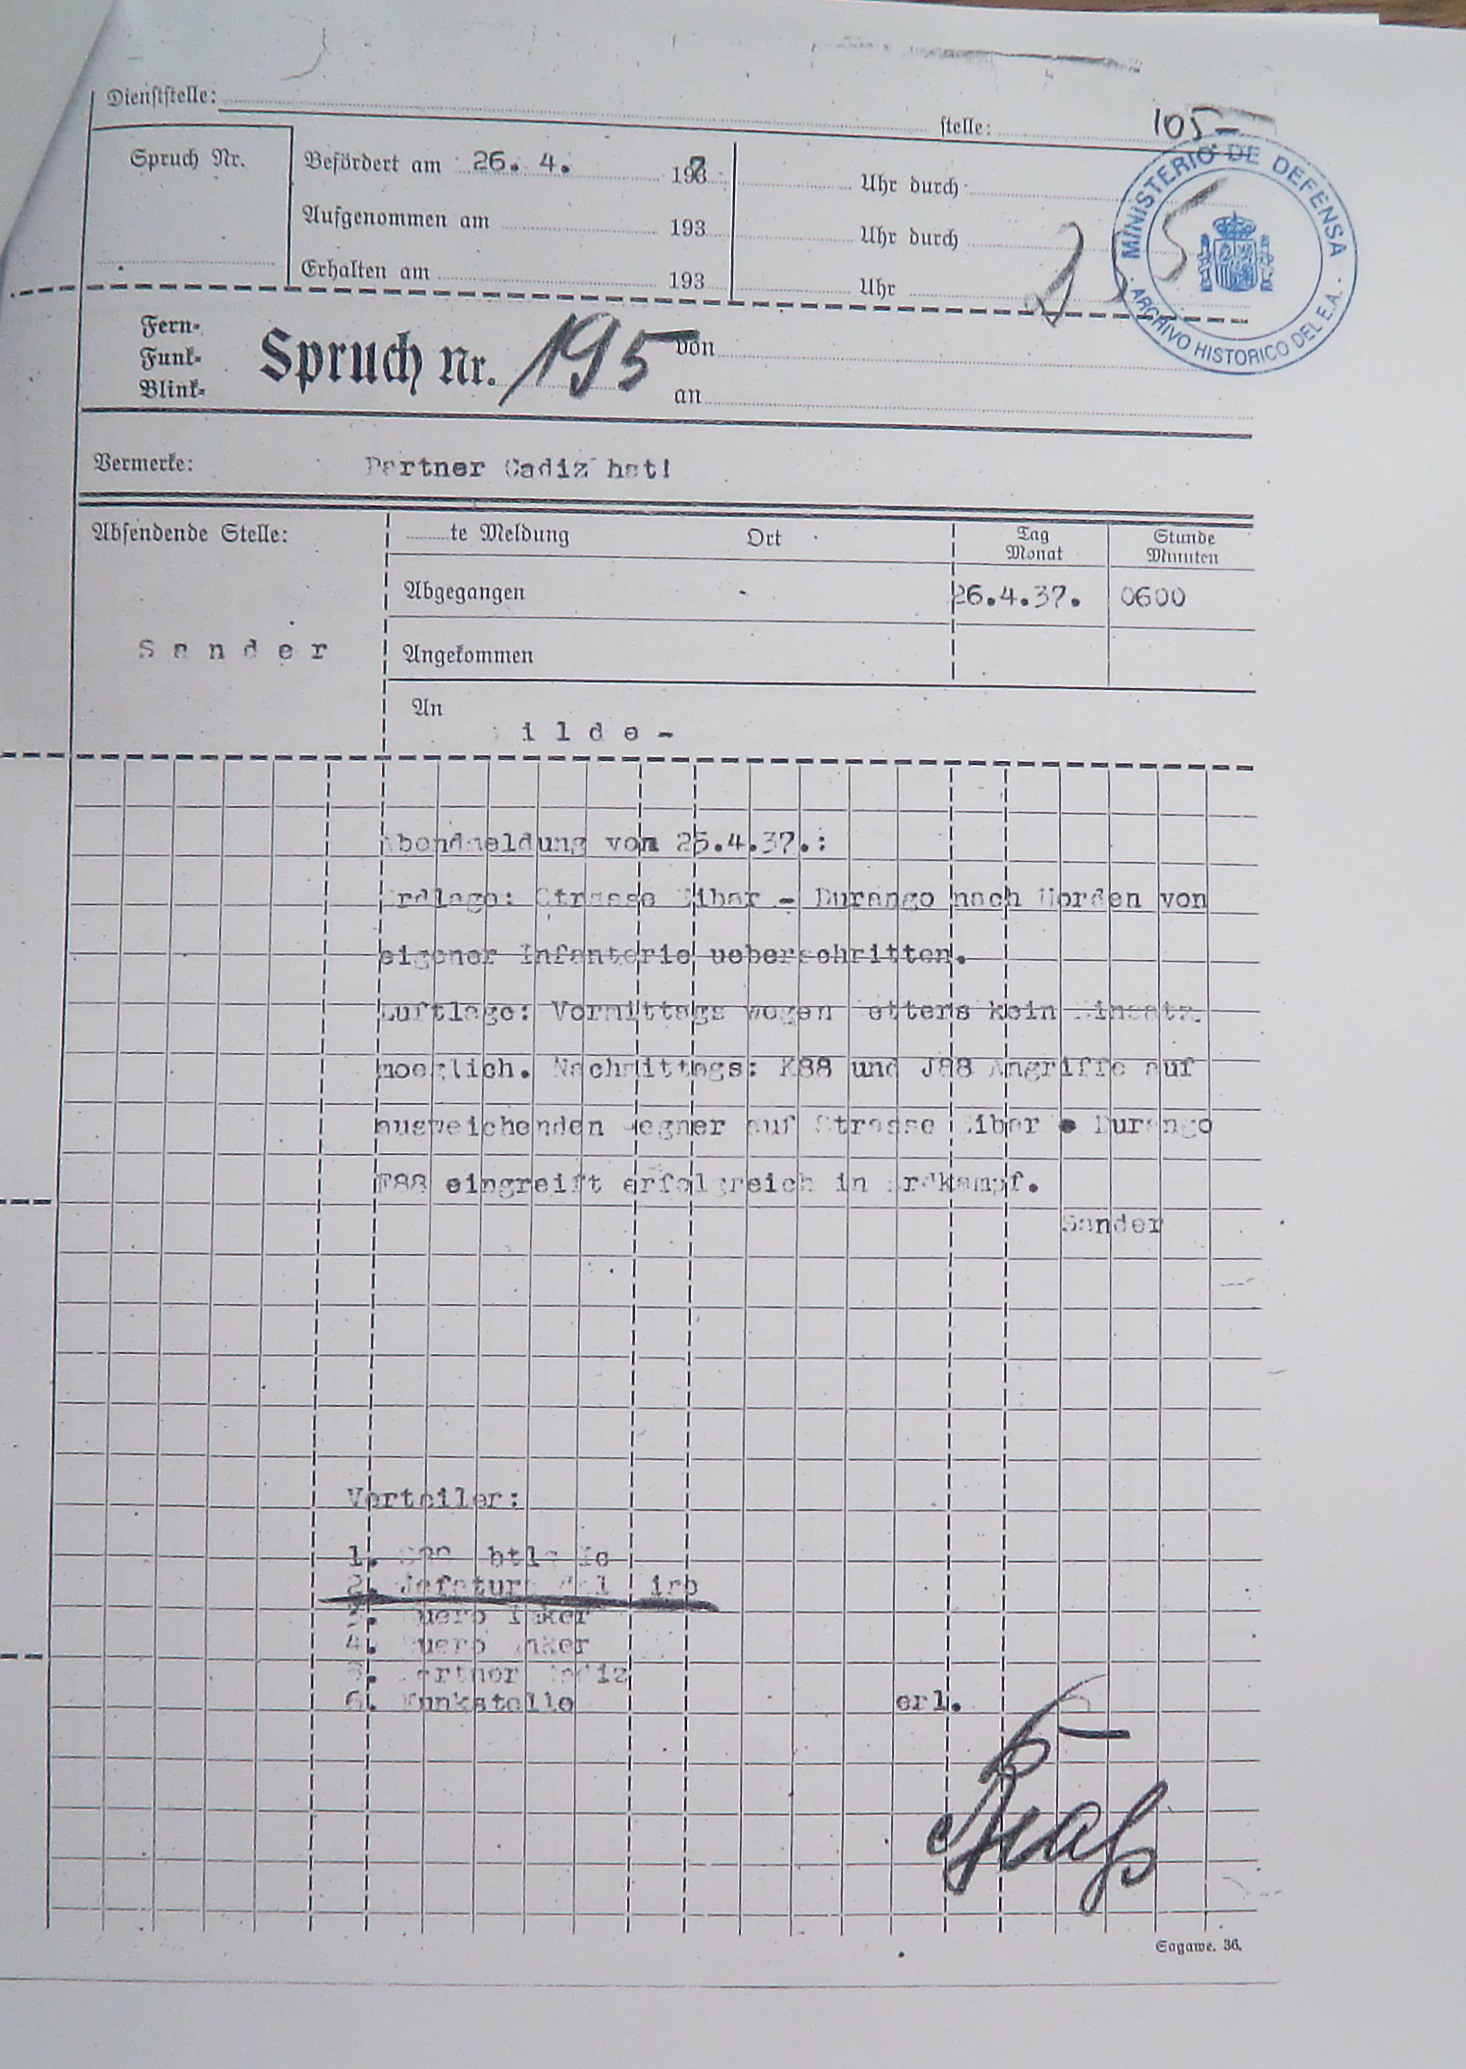 Dienststelle:
stelle: 105-
Spruch Nr.
Befördert am 26. 4. 193 Uhr durch
Aufgenommen am 193 Uhr durch
Erhalten am 193 Uhr
25
MINISTERIO DE DEFENSA
ARCHIVO HISTORICO DEL E.A.
Fern-
Funk-
Blink-
Spruch Nr. 195 von
an
Vermerke: Partner Cadiz hat!
Absendende Stelle:
te Meldung Ort Tag Monat Stunde Minuten
Abgegangen 26.4.37. 0600
Sander
Angekommen
An
ilde-
Abendmeldung vom 25.4.37.:
Erdlage: Strasse Eibar - Durango nach Norden von
eigener Infanterie ueberschritten.
Luftlage: Vormittags wegen Wetters kein Einsatz
moeglich. Nachmittags: K88 und J88 Angriffe auf
ausweichenden Gegner auf Strasse Eibar - Durango
F88 eingreift erfolgreich in Erdkampf.
Sander
Verteiler:
1. Ic
2. Jefatura del Aire
3.
4.
5. Partner Cadiz
6. Funkstelle erl.
Sagawe. 36.